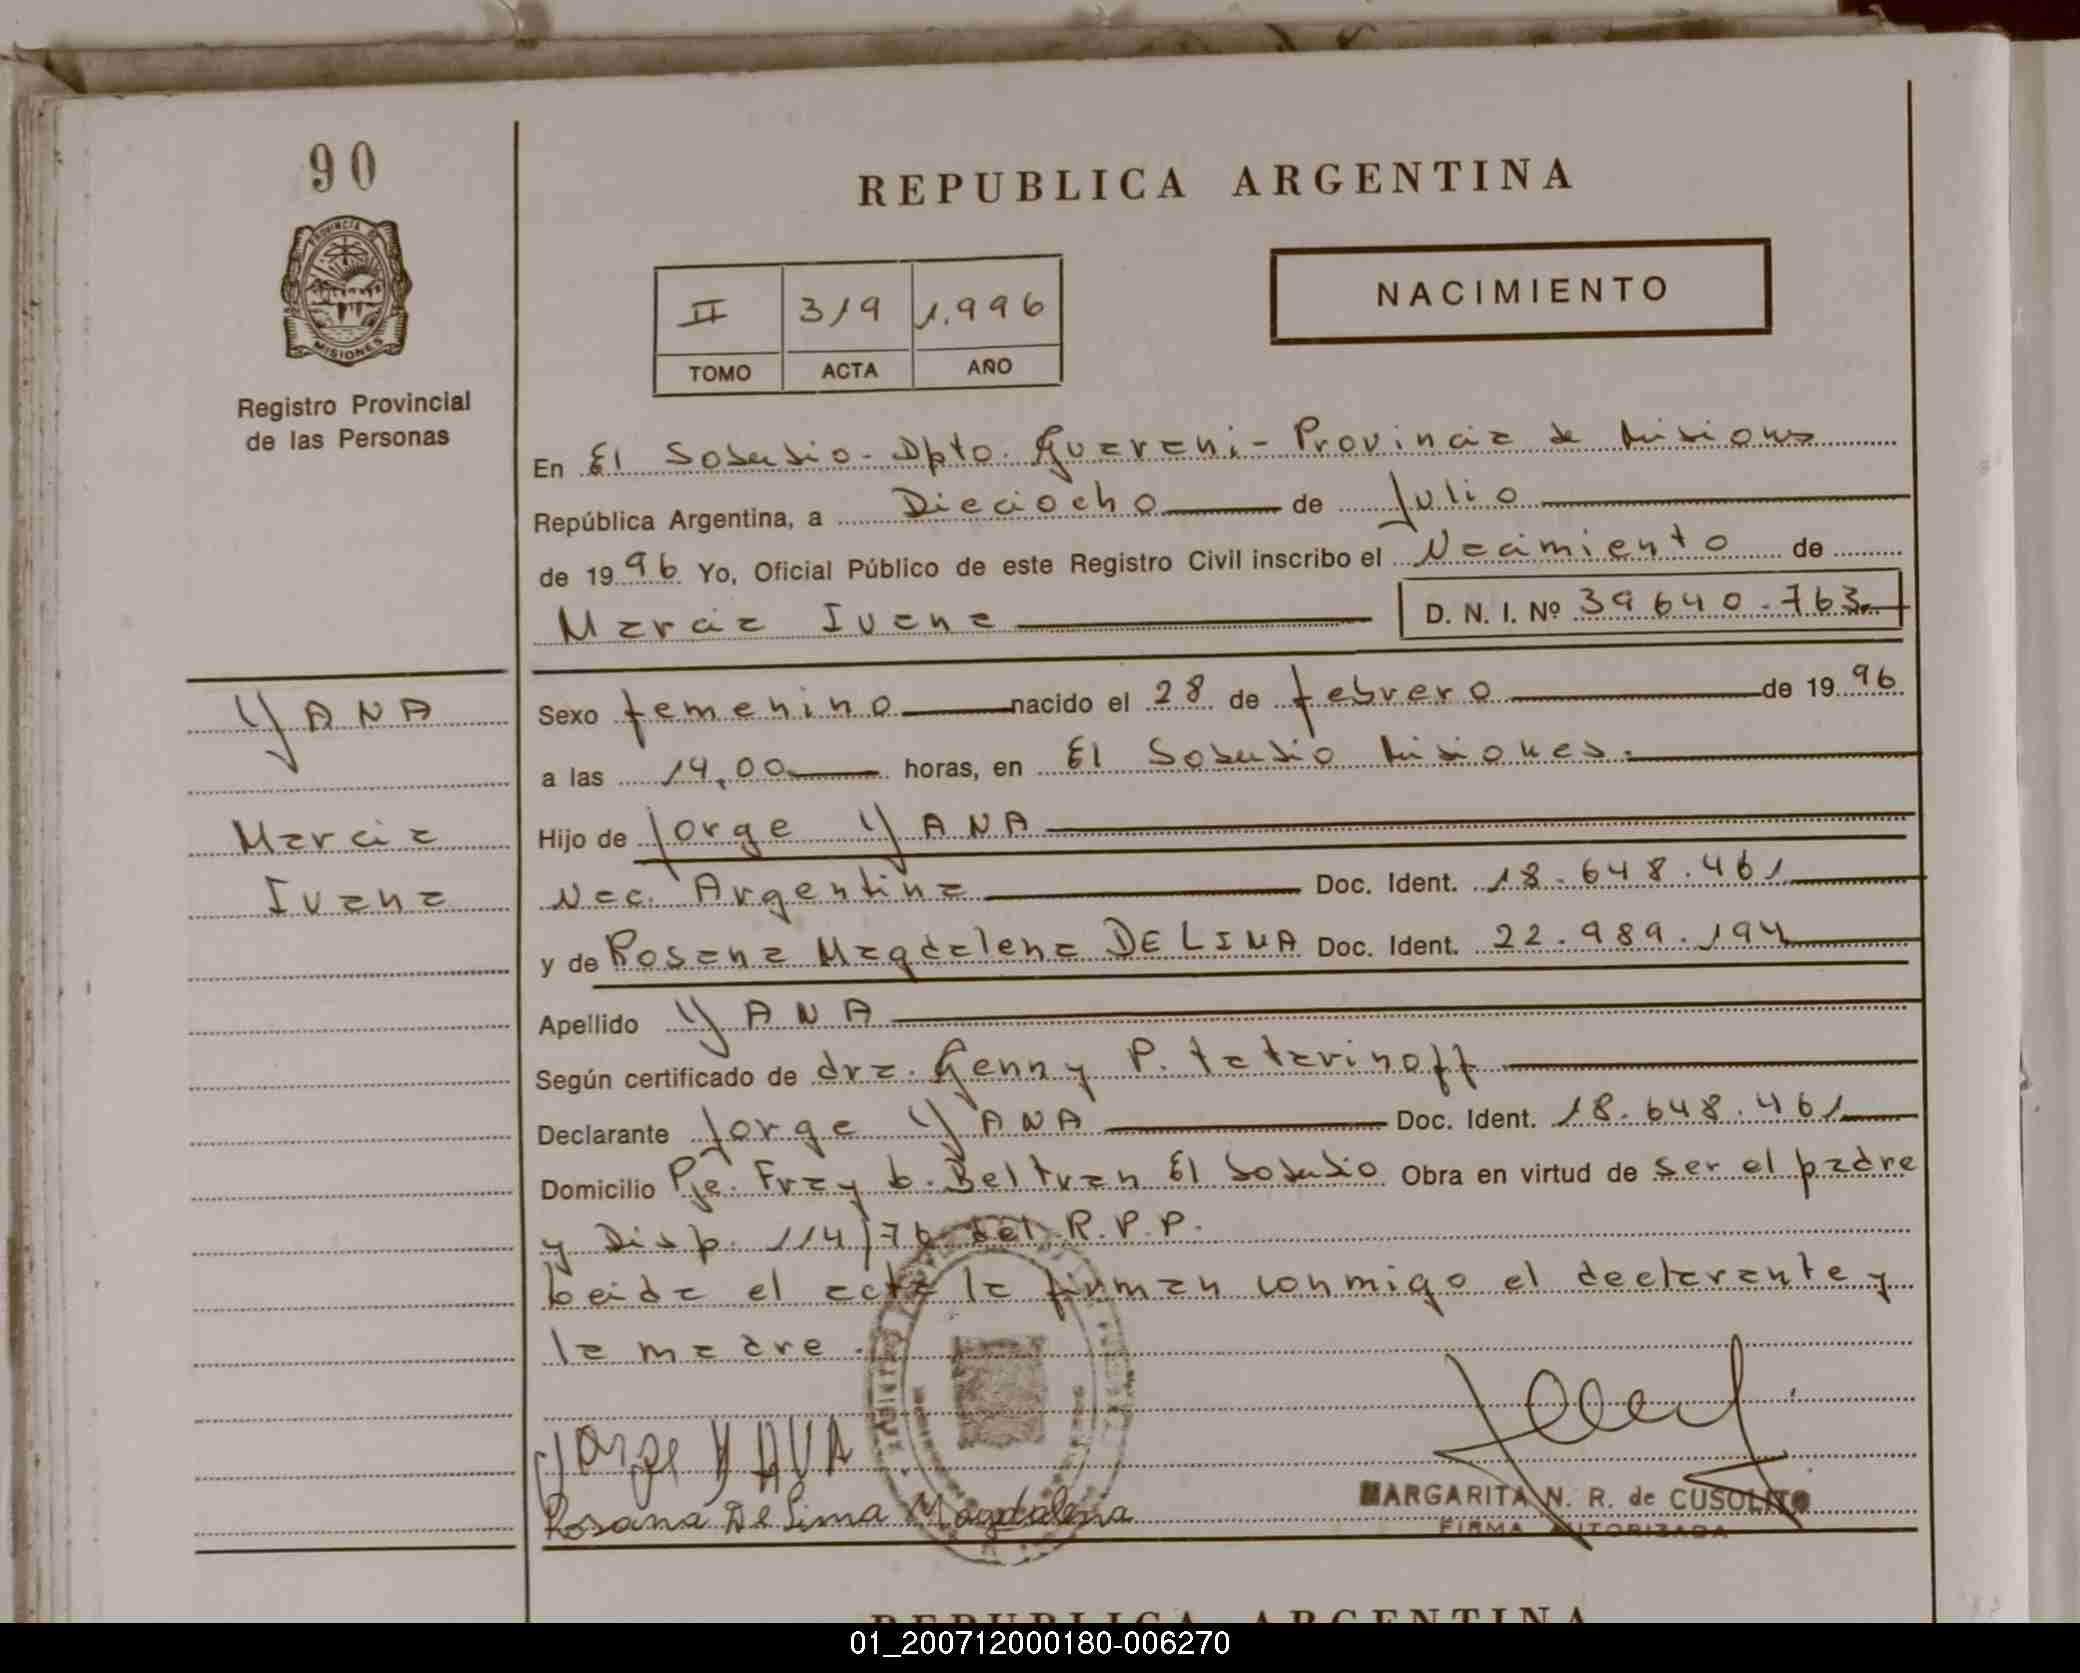 90
REPUBLICA ARGENTINA
PROVINCIA DE
MISIONES
Registro Provincial
de las Personas
II 319 1.996
TOMO ACTA AÑO
NACIMIENTO
En El Soberbio - Dpto. Guarani - Provincia de Misiones
República Argentina, a Dieciocho de Julio
de 1996 Yo, Oficial Público de este Registro Civil inscribo el Nacimiento de
Marcia Ivana D. N. I. Nº 39640.763
YANA
Marcia
Ivana
Sexo femenino nacido el 28 de febrero de 1996
a las 14,00 horas, en El Soberbio Misiones.
Hijo de Jorge YANA
Nac. Argentina Doc. Ident. 18.648.461
y de Rosana Magdalena DE LIMA Doc. Ident. 22.989.194
Apellido YANA
Según certificado de dra. Genny P. tatarinoff
Declarante Jorge YANA Doc. Ident. 18.648.461
Domicilio Pje. Fray L. Beltran El Soberbio Obra en virtud de ser el padre
y Disp. 114/76 del R.P.P.
Leida el acta la firman conmigo el declarante y
la madre.
Jorge YANA
Rosana De Lima Magdalena
MARGARITA N. R. de CUSOLITO
FIRMA AUTORIZADA
REPUBLICA ARGENTINA
01_200712000180-006270